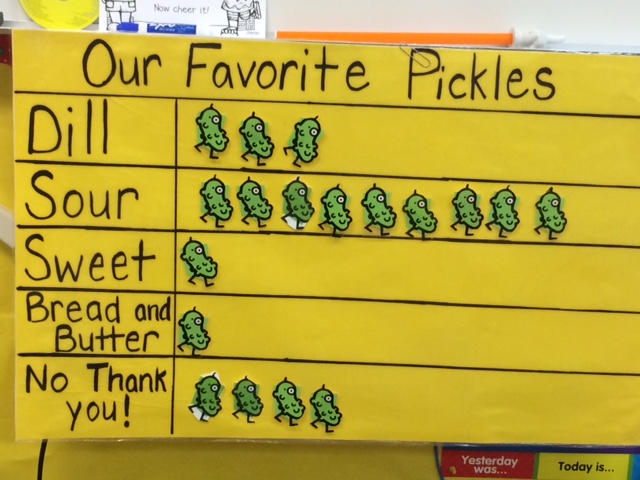 Now cheer it!
Our Favorite Pickles
Dill
Sour
Sweet
Bread and
Butter
No Thank
you!
Yesterday
was...
Today is...